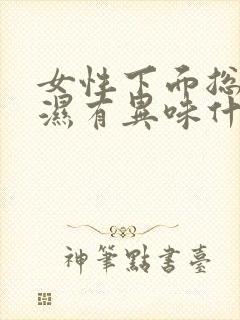 女性下面总
濕有異味什
神筆點書臺